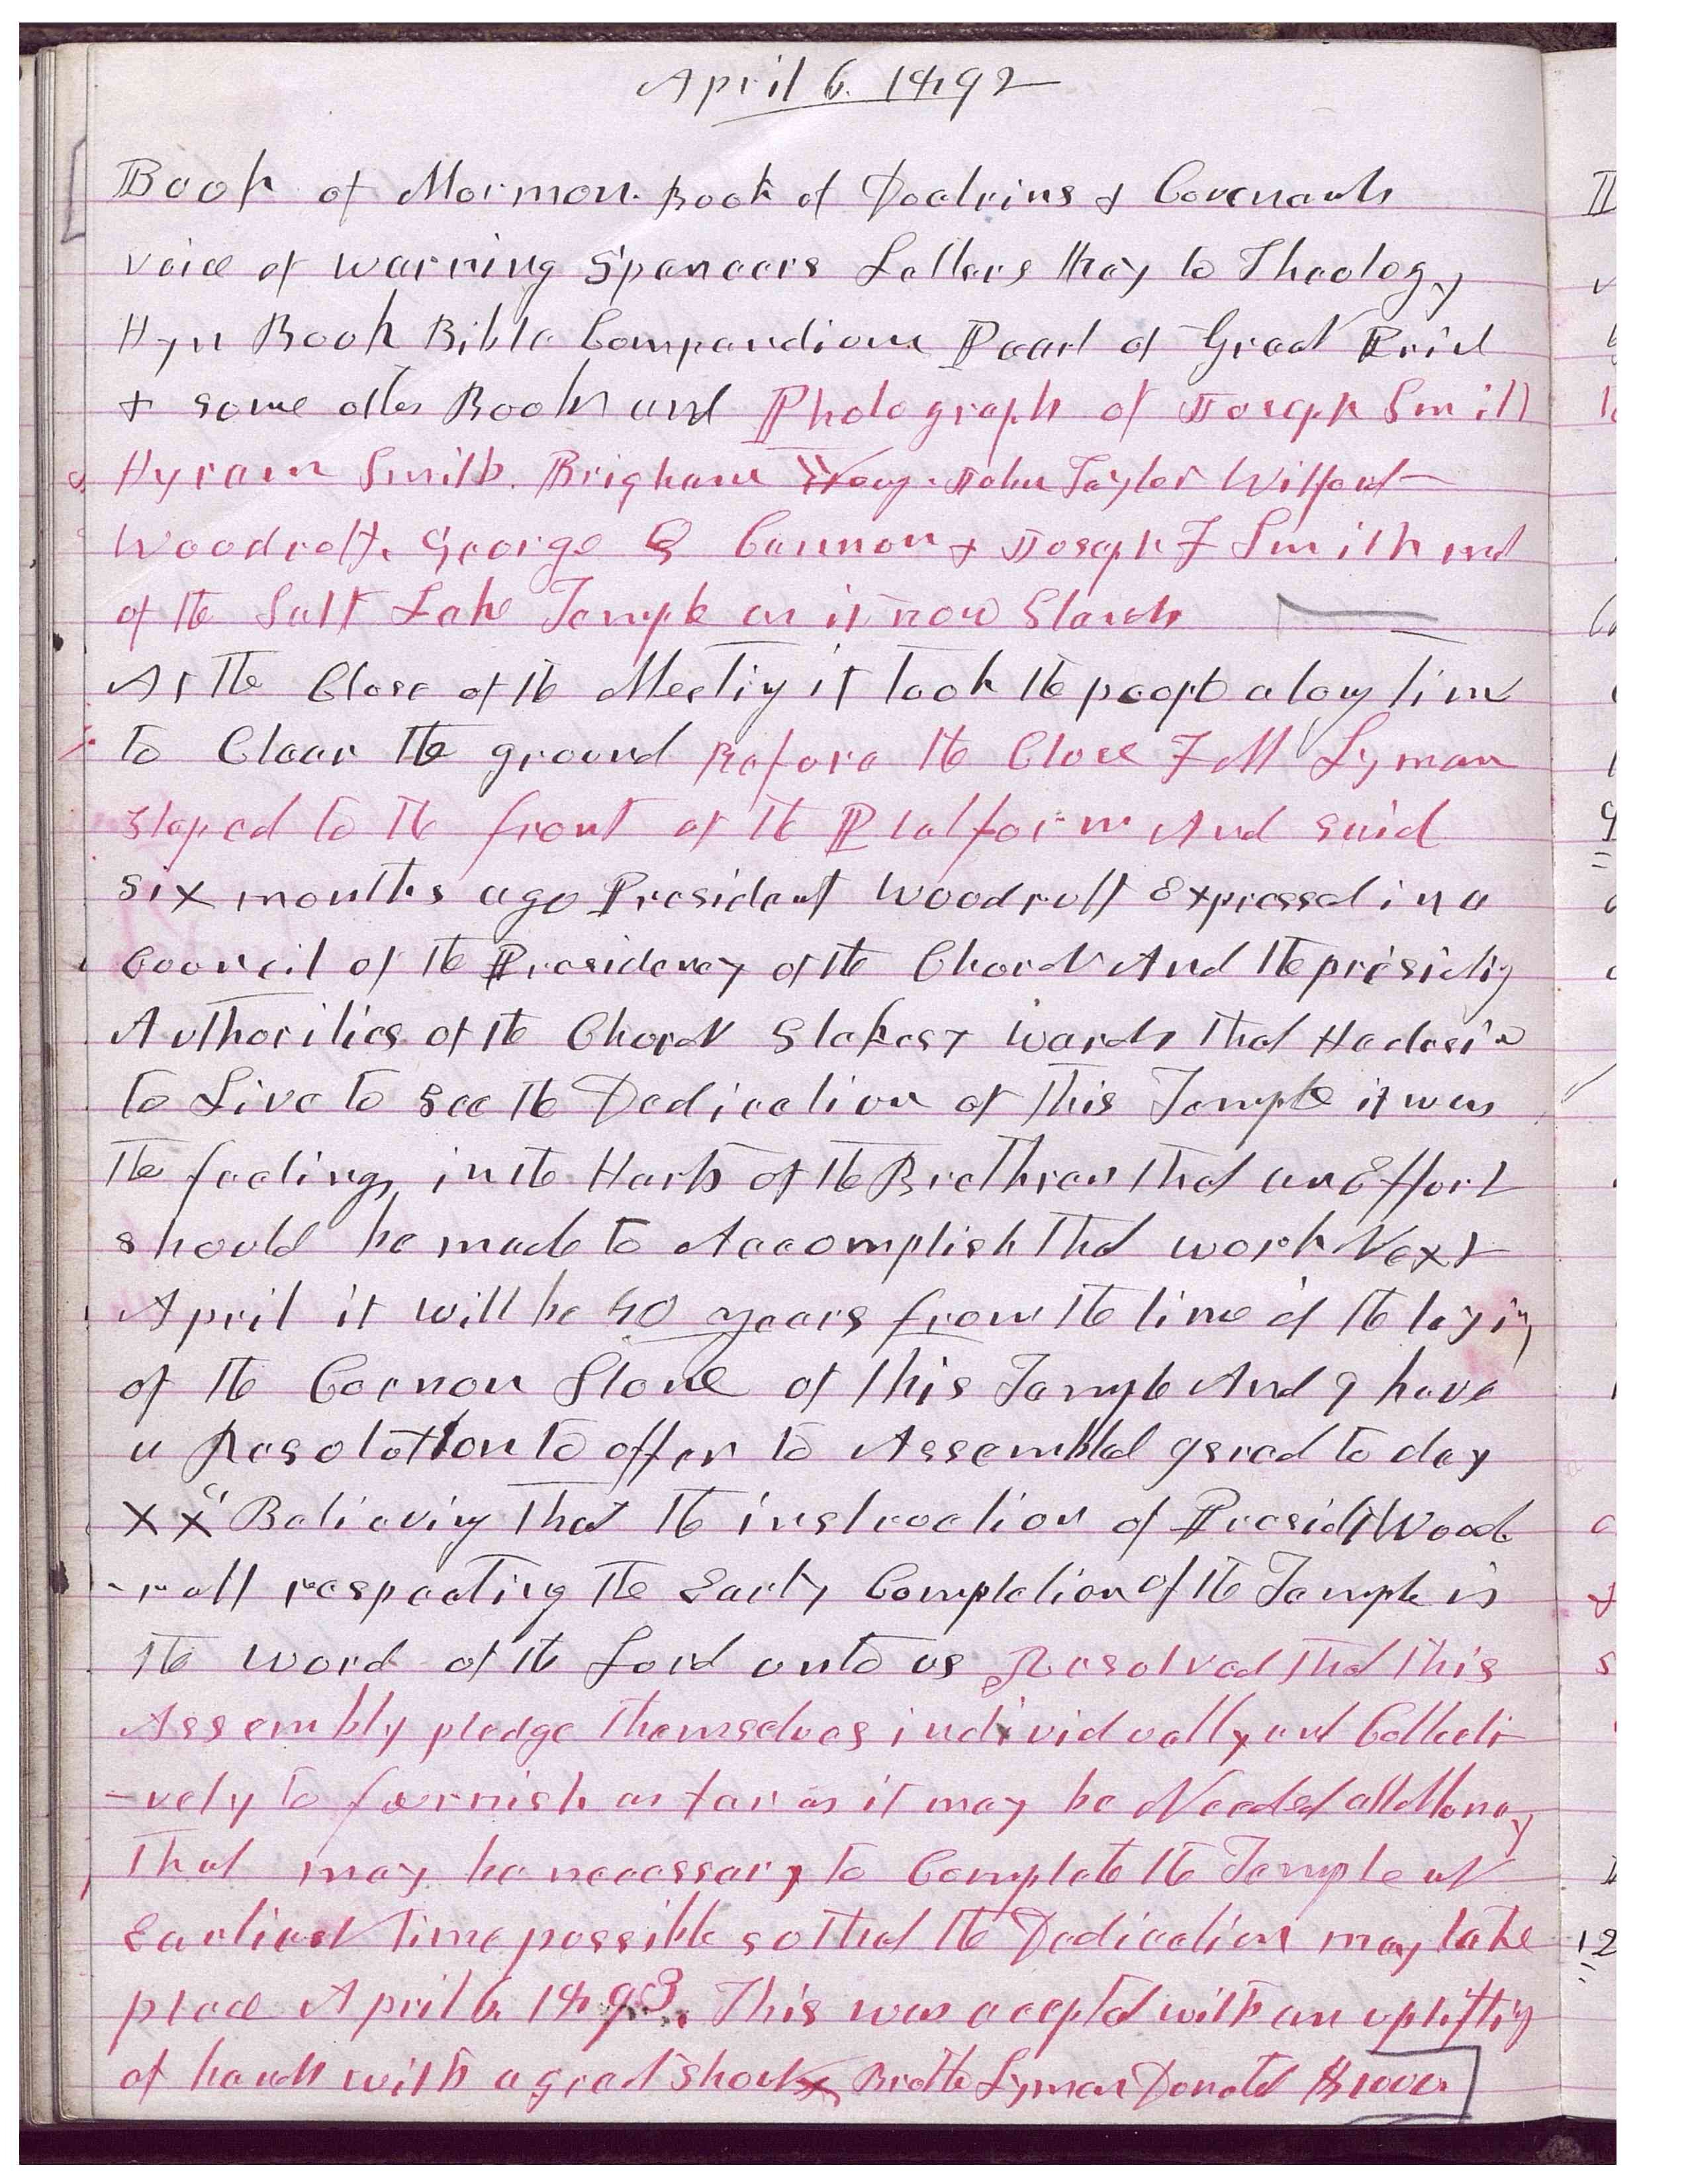 April 6. 1892
Book of Mormon. Book of Doctrins & Covenants
voice of warning Spencers Letters Key to Theology
Hyn Book Bible Compendium Pearl of Great Price
& some other Books and Photograph of Joseph Smith
Hyram Smith. Brigham Young. John Taylor Wilford
Woodruff, George Q Cannon & Joseph F Smith and
of the Salt Lake Temple as it now Stands
At the Close of the Meeting it took the people a long time
to Clear the ground Before the Close F M Lyman
Steped to the front of the Platform And said
six months ago President Woodruff Expressed in a
Council of the Presidency of the Church And the presiding
Authorities of the Church Stakes & wards that He desire
to Live to see the Dedication of this Temple it was
the feelings in the Harts of the Brethren that an Effort
should be made to Accomplish that work Next
April it will be 40 years from the time of the laying
of the Cornor Stone of this Temple And I have
a Resolution to offer to Assembled Isred to day
X X "Believing that the instruction of President Wood
-ruff respecting the Early Completion of the Temple is
the word of the Lord unto us Resolved that this
Assembly pledge themselves individually and Collecti
-vely to furnish as far as it may be Needed all Money
that may be necessary to Complete the Temple at
Earliest time possible so that the Dedication may take
place April 6, 1893. This was acepted with an uplifting
of hands with a great shout Brother Lyman Donated $1000.